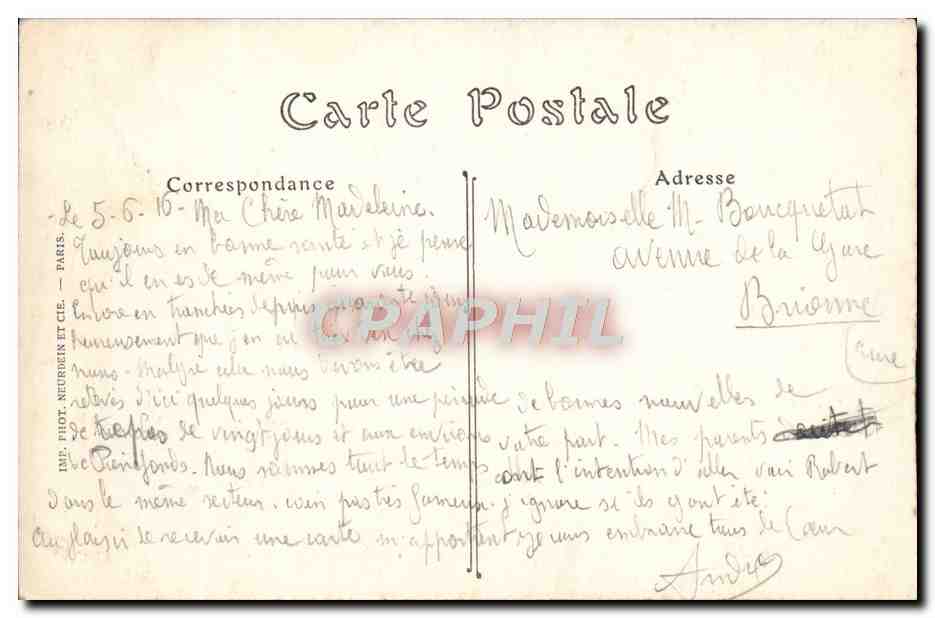 Carte Postale
Correspondance
Adresse
IMP. PHOT. NEURDEIN ET CIE. — PARIS.
CPAPHIL
Le 5-6-16 - Ma Chère Madeleine.
Toujours en bonne santé et je pense
qu'il en es de même pour vous.
Encore en tranchées depuis
heureusement que j'en ai
nuns. Malgré cela nous devons être
relevés d'ici quelques jours pour une période
de repos de vingt jours et aux environs
de Pierrefonds. Nous sommes tout le temps
dans le même secteur. coin pas très fameux.
Au plaisir de recevoir une carte m'apportant
de bonnes nouvelles de
votre part. Mes parents
ont l'intention d'aller voir Robert
j'ignore si ils y ont été.
je vous embrasse tous de Cœur
André
Mademoiselle M. Boucquetat
avenue de la Gare
Brionne
(Eure)